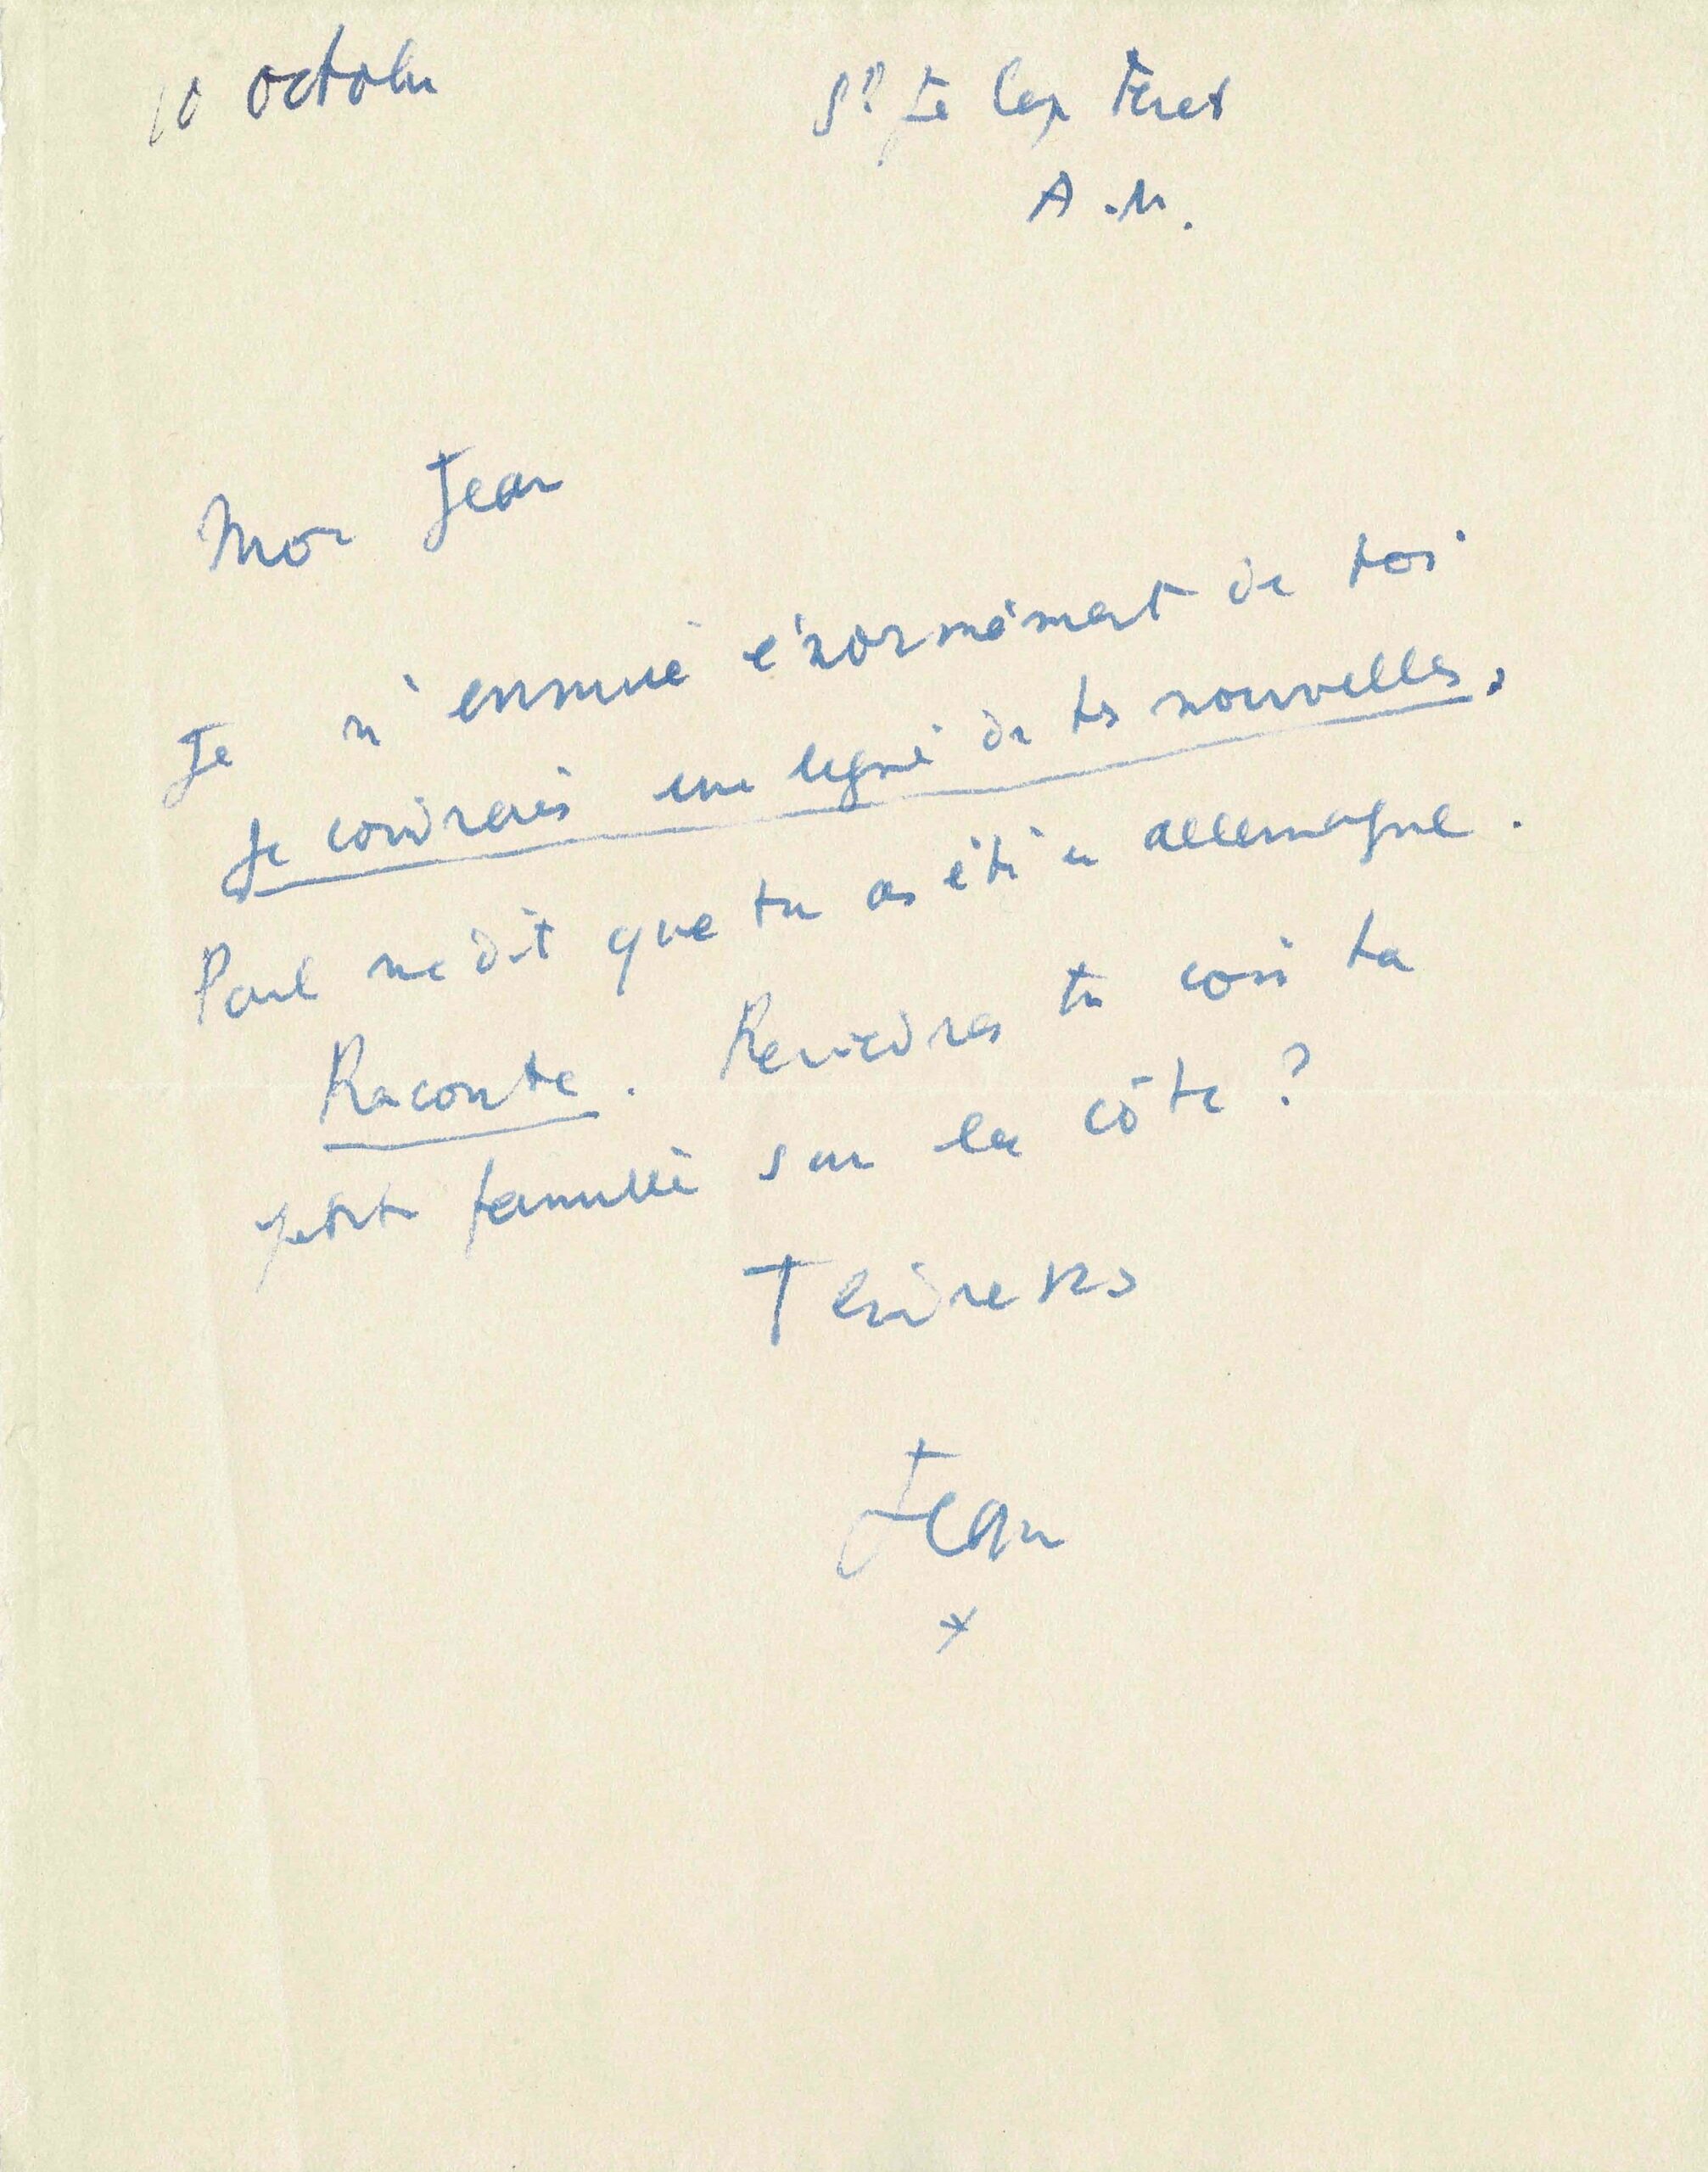 10 octobre
St Jean Cap Ferrat
A.M.
Mon Jean
Je m'ennuie énormément de toi
Je voudrais une ligne de tes nouvelles.
Paul me dit que tu as été en allemagne.
Raconte. Reviendras tu voir ta
petite famille sur la côte ?
Tendresses
Jean
*